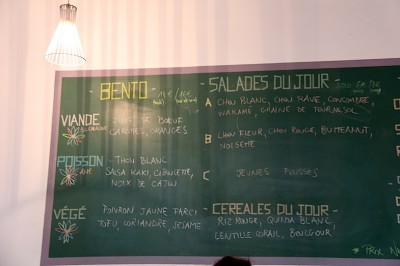 - BENTO -
VIANDE
BOEUF
CAROTTES, ORANGES
POISSON - THON BLANC
SALSA KAKI, CIBOULETTE,
NOIX DE CAJOU
VÉGÉ POIVRON JAUNE FARCI
TOFU, CORIANDRE, SESAME
- SALADES DU JOUR -
A CHOU BLANC, CHOU RAVE, CONCOMBRE,
WAKAME, GRAINE DE TOURNESOL
B CHOU FLEUR, CHOU ROUGE, BUTTERNUT,
NOISETTE
C JEUNES POUSSES
- CEREALES DU JOUR -
RIZ ROUGE, QUINOA BLANC
LENTILLE CORAIL, BOULGOUR